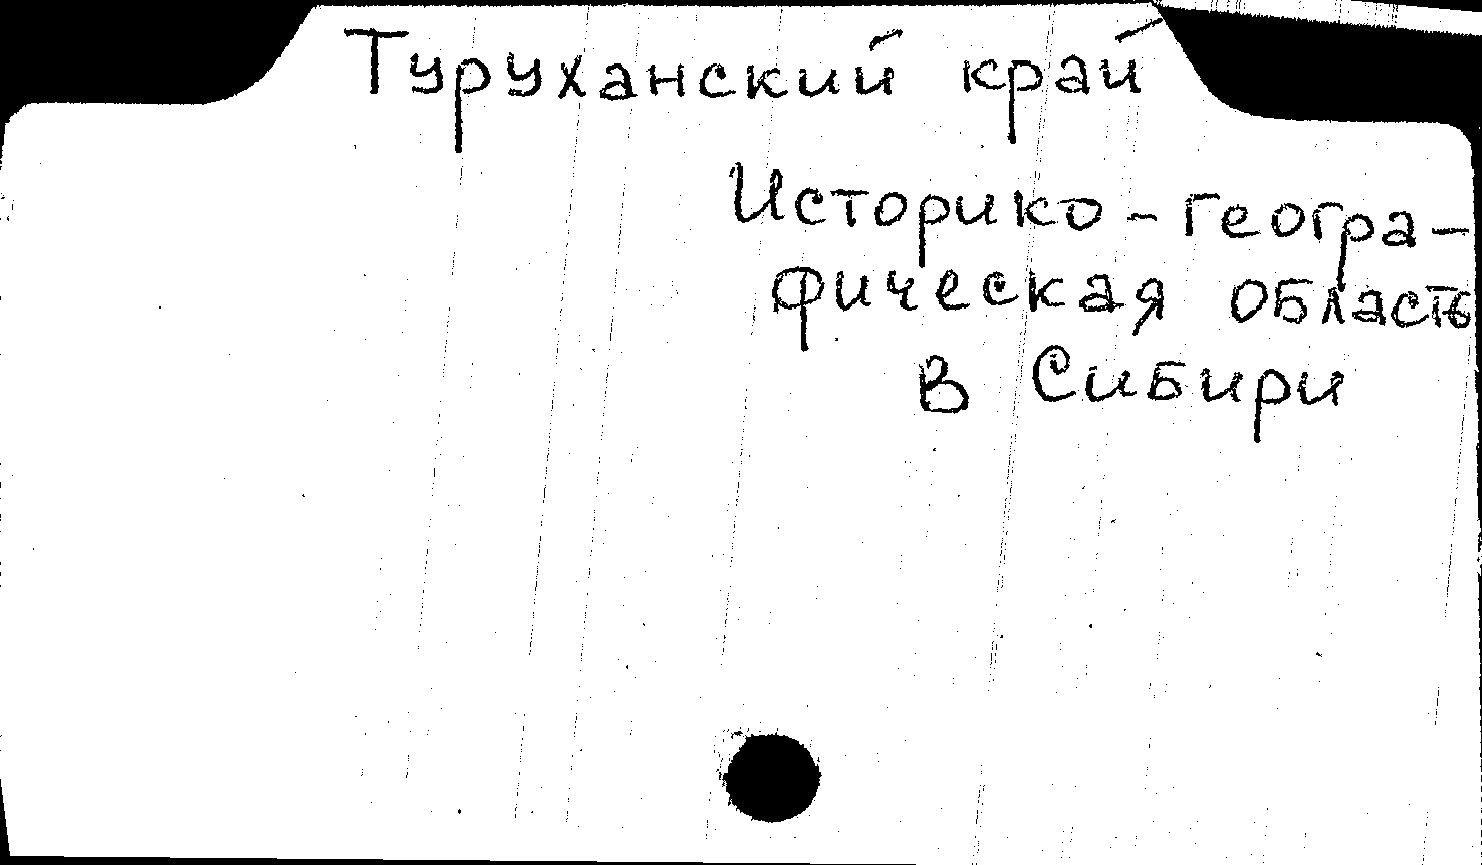 Туруханский край
Историко-геогра-
фическая область
в Сибири